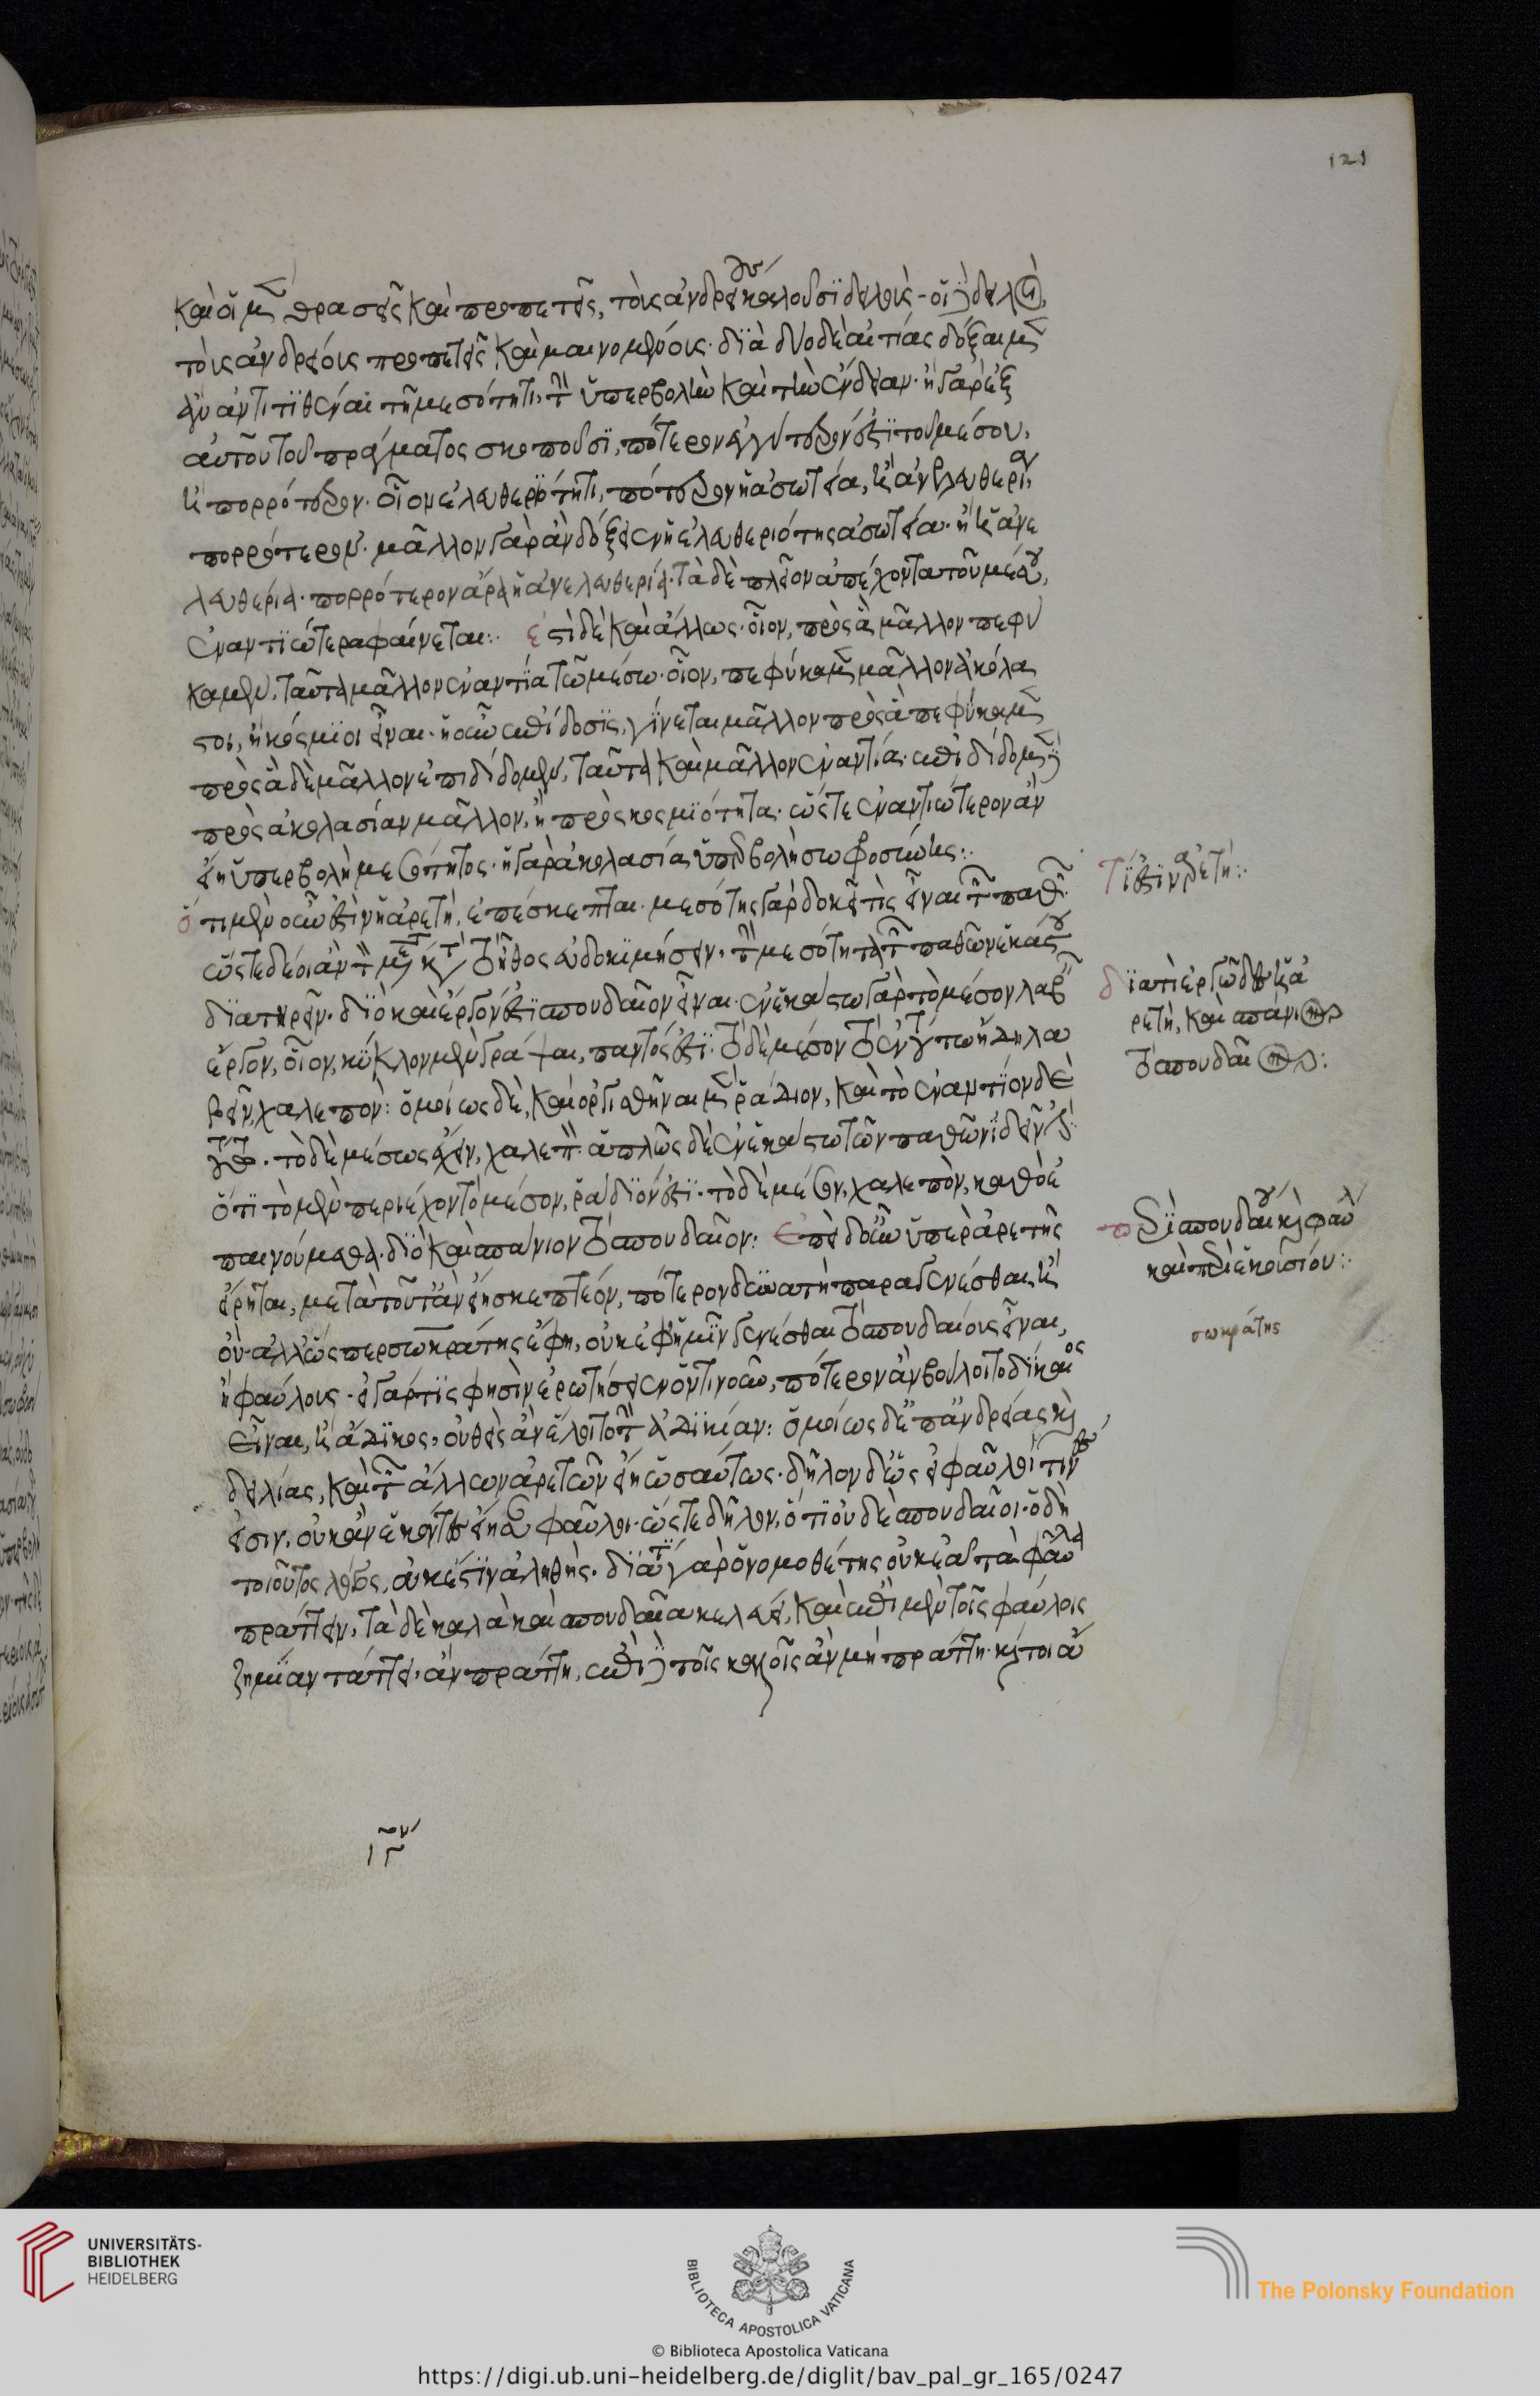 121
καὶ οἱ μὲν θρασεῖς καὶ προπετεῖς, τοὺς ἀνδρείους καλοῦσι δειλούς· οἱ δὲ δειλοὶ,
τοὺς ἀνδρείους προπετεῖς καὶ μαινομένους. διὰ δύο δὲ αἰτίας δόξαιμεν
ἂν ἀντιτιθέναι τῇ μεσότητι, τὴν ὑπερβολὴν καὶ τὴν ἔνδειαν. ἢ γὰρ ἐξ
αὐτοῦ τοῦ πράγματος σκοποῦσι, πότερον ἐγγύτερόν ἐστι τοῦ μέσου,
ἢ πορρότερον. οἷον ἐλευθεριότητι, πότερον ἡ ἀσωτεία, ἢ ἀνελευθερία,
πορρότερον. μᾶλλον γὰρ ἂν δόξειεν ἡ ἐλευθεριότης ἀσωτεία. ἢ ἡ ἀνε
λευθερία. πορρότερον ἄρα ἡ ἀνελευθερία. τὰ δὲ πλεῖον ἀπέχοντα τοῦ μέσου,
ἐναντιώτερα φαίνεται: ἔστι δὲ καὶ ἄλλως. οἷον, πρὸς ἃ μᾶλλον πεφύ
καμεν, ταῦτα μᾶλλον ἐναντία τῷ μέσῳ. οἷον, πεφύκαμεν μᾶλλον ἀκόλα
στοι, ἢ κόσμιοι εἶναι. ἡ οὖν ἐπίδοσις, γίνεται μᾶλλον πρὸς ἃ πεφύκαμεν
πρὸς ἃ δὲ μᾶλλον ἐπιδίδομεν, ταῦτα καὶ μᾶλλον ἐναντία. ἐπιδίδομεν δὲ
πρὸς ἀκολασίαν μᾶλλον, ἢ πρὸς κοσμιότητα. ὥστε ἐναντιώτερον ἂν
εἴη ὑπερβολὴ μεσότητος. ἡ γὰρ ἀκολασία ὑπερβολὴ σωφροσύνης:
ὅτι μὲν οὖν ἐστὶν ἡ ἀρετὴ, ἐπέσκεπται. μεσότης γὰρ δοκεῖ τὶς εἶναι τῶν παθῶν.
ὥστε δέοι ἂν τὸν μέλλοντα κατὰ τὸ ἦθος εὐδοκιμήσειν, τὴν μεσότητα τῶν παθῶν ἑκάστου
διατηρεῖν. διὸ καὶ ἔργον ἐστὶ σπουδαῖον εἶναι. ἐν ἑκάστω γὰρ τὸ μέσον λαβεῖν
ἔργον, οἷον, κύκλον μὲν γράψαι, παντός ἐστι. τὸ δὲ μέσον τὸ ἐν τούτῳ ἤδη λα
βεῖν, χαλεπόν: ὁμοίως δὲ, καὶ ὀργισθῆναι μὲν ῥάδιον, καὶ τὸ ἐναντίον δὲ
τούτου. τὸ δὲ μέσως ἔχειν, χαλεπόν. ἁπλῶς δὲ ἐν ἑκάστω τῶν παθῶν ἰδεῖν ἔστιν.
ὅτι τὸ μὲν περιέχον τὸ μέσον, ῥάδιόν ἐστι. τὸ δὲ μέσον, χαλεπὸν, καθὸ ἐ
παινούμεθα. διὸ καὶ σπάνιον τὸ σπουδαῖον: Ἐπεὶ δ' οὖν ὑπὲρ ἀρετῆς
εἴρηται, μετὰ τοῦτ' ἂν εἴη σκεπτέον, πότερον δυνατὴ παραγενέσθαι, ἢ
οὔ. ἀλλ' ὥσπερ σωκράτης ἔφη, οὐκ ἐφ' ἡμῖν γενέσθαι τὸ σπουδαίους εἶναι,
ἢ φαύλους. εἰ γάρ τις φησὶν ἐρωτήσειεν ὁντιναοῦν, πότερον ἂν βούλοιτο δίκαιος
εἶναι, ἢ ἄδικος, οὐθεὶς ἂν ἕλοιτο τὴν ἀδικίαν: ὁμοίως δ' ἐπ' ἀνδρείας καὶ
δειλίας, καὶ τῶν ἄλλων ἀρετῶν ἀεὶ ὡσαύτως. δῆλον δ' ὡς εἰ φαῦλοί τινές
εἰσιν, οὐκ ἂν ἑκόντες εἴησαν φαῦλοι. ὥστε δῆλον, ὅτι οὐδὲ σπουδαῖοι. ὁ δὴ
τοιοῦτος λόγος, οὐκ ἔστιν ἀληθής. διὰ τί γὰρ ὁ νομοθέτης οὐκ ἐᾷ τὰ φαῦλα
πράττειν, τὰ δὲ καλὰ καὶ σπουδαῖα κελεύει, καὶ ἐπὶ μὲν τοῖς φαύλοις
ζημίαν τάττει, ἂν πράττη, ἐπὶ δὲ τοῖς καλοῖς ἂν μὴ πράττη. καίτοι ἄ
τί ἐστὶν ἀρετή:
διατί ἐργῶδες ἡ ἀ
ρετὴ, καὶ σπάνιον
τὸ σπουδαῖον:
περὶ σπουδαίου καὶ φαύλου
καὶ περὶ ἑκουσίου:
σωκράτης
UNIVERSITÄTS-
BIBLIOTHEK
HEIDELBERG
BIBLIOTECA APOSTOLICA VATICANA
The Polonsky Foundation
© Biblioteca Apostolica Vaticana
https://digi.ub.uni-heidelberg.de/diglit/bav_pal_gr_165/0247